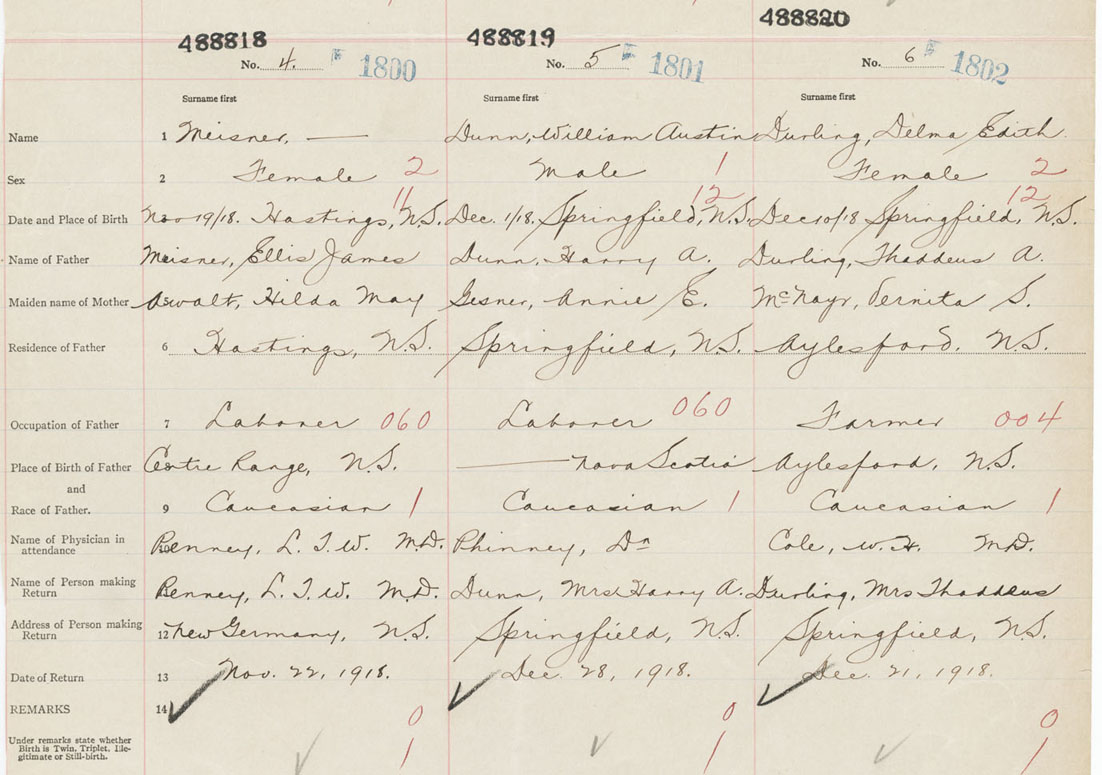 488818 488819 488820
No. 4. 1800 No. 5 1801 No. 6 1802
Surname first Surname first Surname first
Name 1 Meisner, — Dunn, William Austin Durling, Delma Edith
Sex 2 Female 2 Male 1 Female 2
11 12 12
Date and Place of Birth Nov 19/18. Hastings, N.S. Dec. 1/18, Springfield, N.S. Dec 10/18 Springfield, N.S.
Name of Father Meisner, Ellis James Dunn, Harry A. Durling, Thaddeus A.
Maiden name of Mother Aswalt, Hilda May Gesner, Annie E. McNayr, Vernita S.
Residence of Father 6 Hastings, N.S. Springfield, N.S. Aylesford. N.S.
Occupation of Father 7 Laborer 060 Laborer 060 Farmer 004
Place of Birth of Father Centre Range, N.S. — Nova Scotia Aylesford, N.S.
and
Race of Father. 9 Caucasian 1 Caucasian 1 Caucasian 1
Name of Physician in attendance 10 Penney, L. T. W. M.D. Phinney, Dr Cole, W. H. M.D.
Name of Person making Return Penney, L. T. W. M.D. Dunn, Mrs Harry A. Durling, Mrs Thaddeus
Address of Person making Return 12 New Germany, N.S. Springfield, N.S. Springfield, N.S.
Date of Return 13 Nov. 22, 1918. Dec. 28, 1918. Dec. 21, 1918.
REMARKS 14 0 0 0
Under remarks state whether
Birth is Twin, Triplet, Ille-
gitimate or Still-birth. 1 1 1